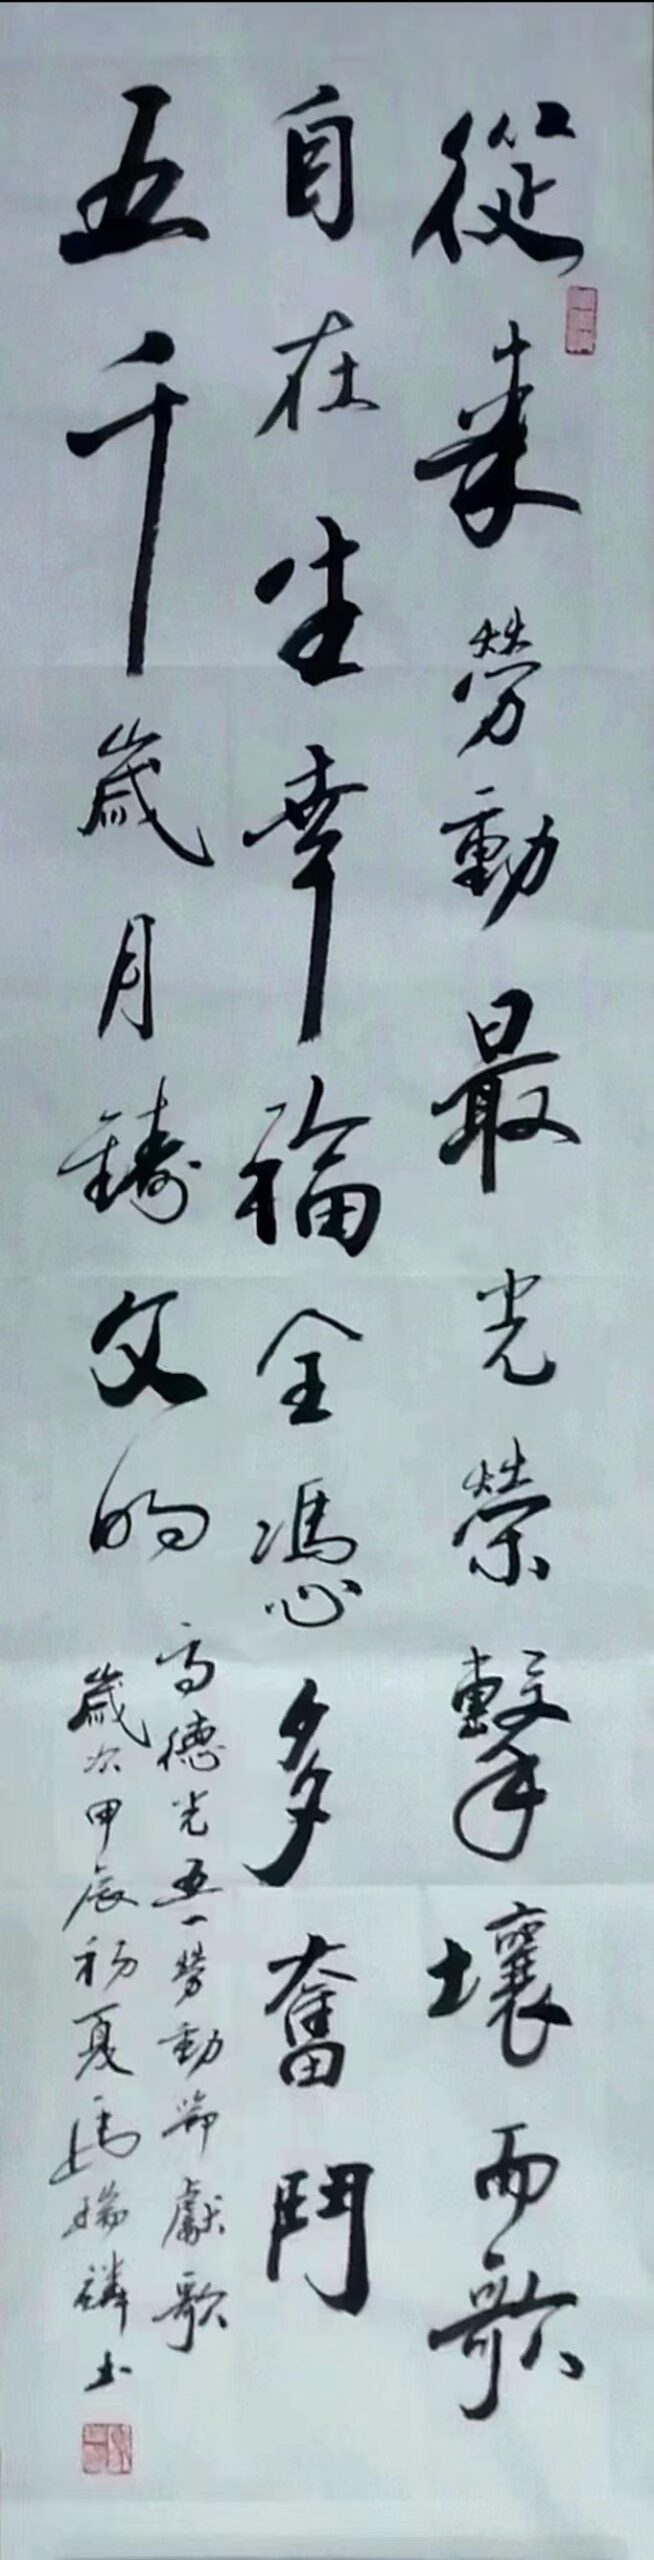 從來勞動最光榮擊壤而歌
自在生幸福全憑多奮鬥
五千歲月鑄文明
高德光五一勞動節獻歌
歲次甲辰初夏馬瑞麟書